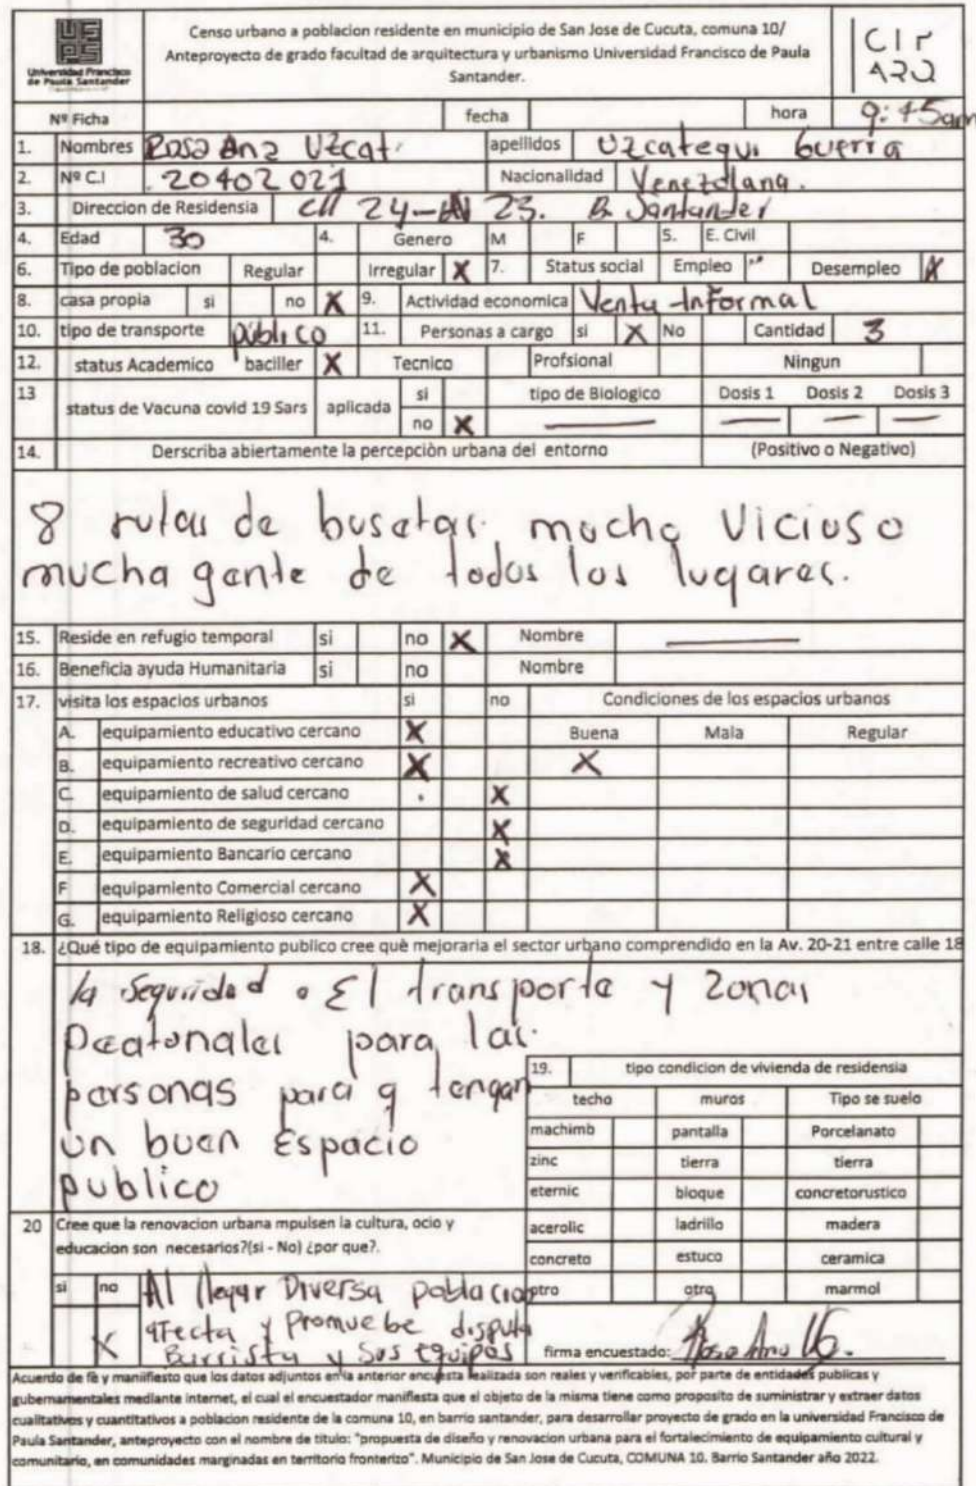 Universidad Francisco
de Paula Santander
Censo urbano a poblacion residente en municipio de San Jose de Cucuta, comuna 10/
Anteproyecto de grado facultad de arquitectura y urbanismo Universidad Francisco de Paula
Santander.
CIP
ARQ
Nº Ficha fecha hora 9:45am
1. Nombres Rosa Ana Uzcat. apellidos Uzcategui Guerra
2. Nº C.I 20402021 Nacionalidad Venezolana.
3. Direccion de Residensia Cll 24- 23. B. Santander
4. Edad 30 4. Genero M F 5. E. Civil
6. Tipo de poblacion Regular Irregular X 7. Status social Empleo Desempleo X
8. casa propia si no X 9. Actividad economica Venta Informal
10. tipo de transporte público 11. Personas a cargo si X No Cantidad 3
12. status Academico baciller X Tecnico Profsional Ningun
13 status de Vacuna covid 19 Sars aplicada si tipo de Biologico Dosis 1 Dosis 2 Dosis 3
no X
14. Derscriba abiertamente la percepciòn urbana del entorno (Positivo o Negativo)
8 rutas de busetas, mucho Vicioso
mucha gente de todos los lugares.
15. Reside en refugio temporal si no X Nombre
16. Beneficia ayuda Humanitaria si no Nombre
17. visita los espacios urbanos si no Condiciones de los espacios urbanos
A. equipamiento educativo cercano X Buena Mala Regular
B. equipamiento recreativo cercano X X
C. equipamiento de salud cercano X
D. equipamiento de seguridad cercano X
E. equipamiento Bancario cercano X
F equipamiento Comercial cercano X
G. equipamiento Religioso cercano X
18. ¿Qué tipo de equipamiento publico cree què mejoraria el sector urbano comprendido en la Av. 20-21 entre calle 18
la Seguridad. El transporte y zonas
peatonales para las
personas para q tengan
un buen Espacio
publico
19. tipo condicion de vivienda de residensia
techo muros Tipo se suelo
machimb pantalla Porcelanato
zinc tierra tierra
eternic bloque concretorustico
acerolic ladrillo madera
concreto estuco ceramica
otro otro marmol
20 Cree que la renovacion urbana mpulsen la cultura, ocio y
educacion son necesarios?(si - No) ¿por que?.
si no Al llegar Diversa poblacion
X afecta y Promuebe disputa
Barrista y Sus equipos
firma encuestado: Rosa Ana Uz.
Acuerdo de fè y manifiesto que los datos adjuntos en la anterior encuesta Realizada son reales y verificables, por parte de entidades publicas y
gubernamentales mediante internet, el cual el encuestador manifiesta que el objeto de la misma tiene como proposito de suministrar y extraer datos
cualitativos y cuantitativos a poblacion residente de la comuna 10, en barrio santander, para desarrollar proyecto de grado en la universidad Francisco de
Paula Santander, anteproyecto con el nombre de titulo: "propuesta de diseño y renovacion urbana para el fortalecimiento de equipamiento cultural y
comunitario, en comunidades marginadas en territorio fronterizo". Municipio de San Jose de Cucuta, COMUNA 10. Barrio Santander año 2022.